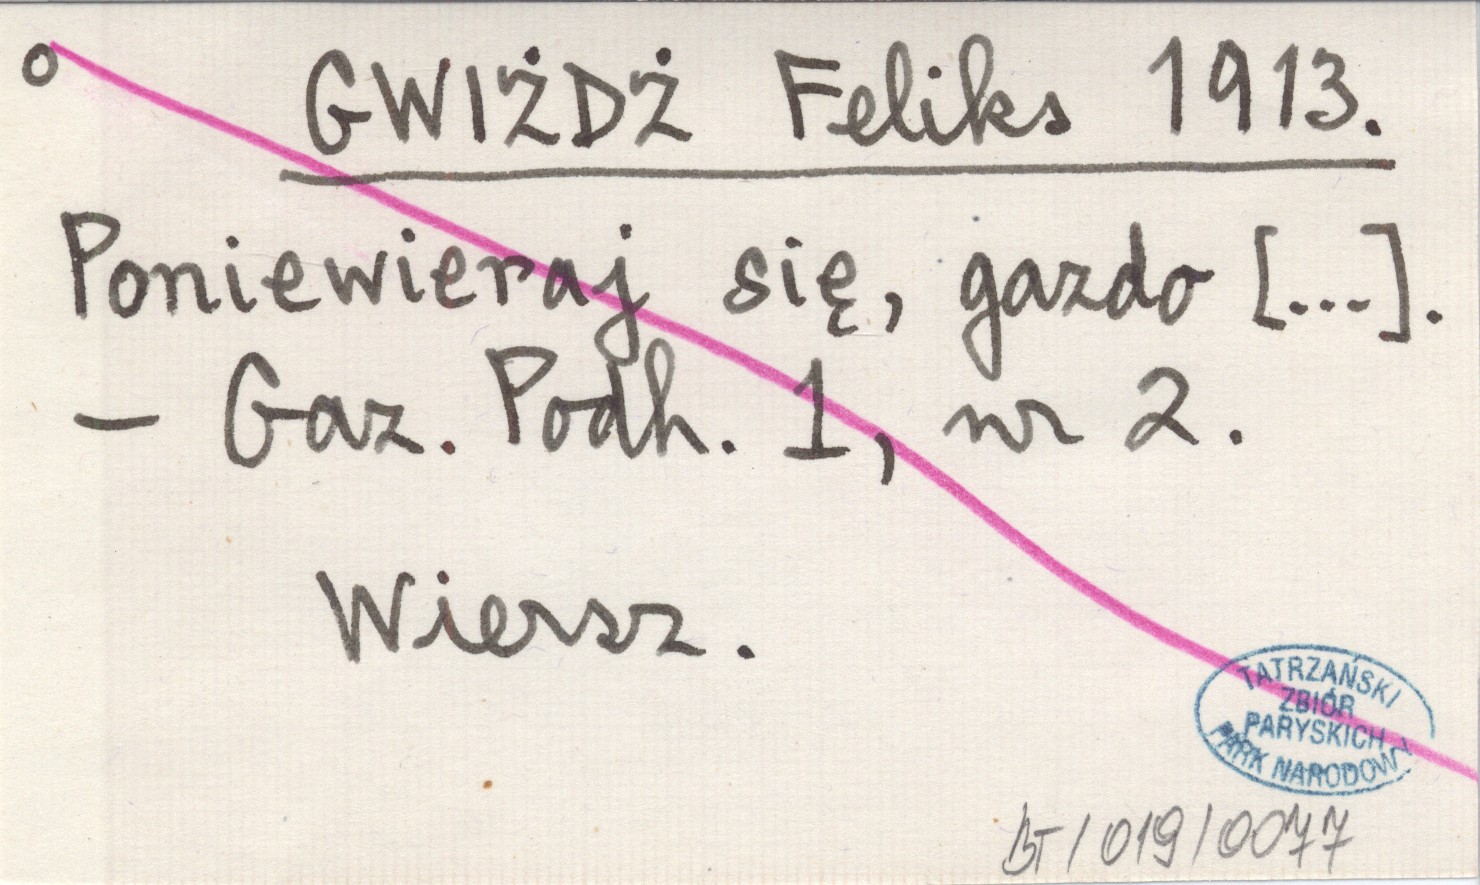 o GWIŻDŻ Feliks 1913.
Poniewieraj się, gazdo [...].
– Gaz. Podh. 1, nr 2.
Wiersz.
TATRZAŃSKI
ZBIÓR
PARYSKICH
PARK NARODOWY
BT/019/0077